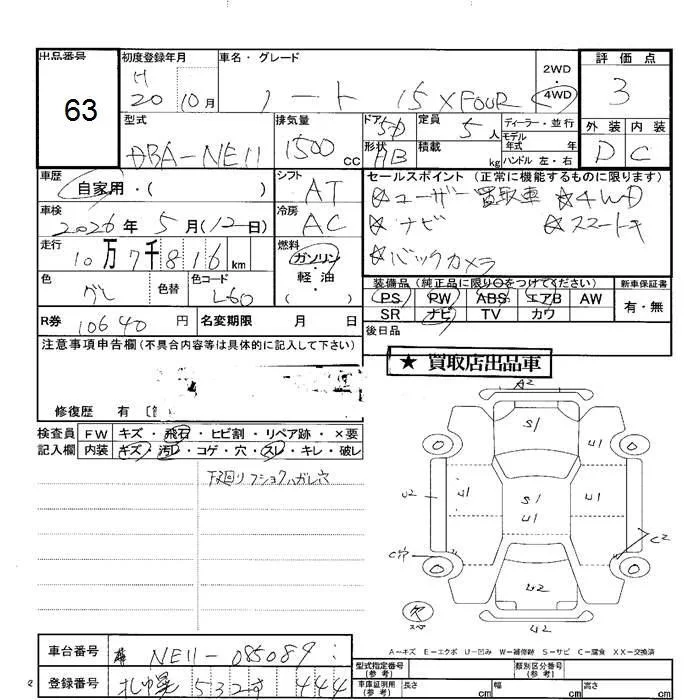 出品番号 初度登録年月 車名・グレード 2WD・4WD 評価点
63 H 20 10月 ノート 15 X FOUR 3
型式 排気量 ドア 5D 定員 5人 ディーラー・並行 外装 内装
DBA-NE11 1500cc 形状 HB 積載 kg モデル年式 年式 ハンドル 左・右 D C
車歴 シフト セールスポイント(正常に機能するものに限ります)
自家用・( ) AT ☆ユーザー買取車 ☆4WD
車検 冷房 ☆ナビ ☆スマートキ
2026年5月(12日) AC ☆バックカメラ
走行 燃料
10万7千816km ガソリン・軽油( )
色 色替 色コード 装備品(純正品に限り○をつけてください) 新車保証書
グレ L60 PS PW ABS エアB AW 有・無
SR ナビ TV カワ
R券 10640円 名変期限 月 日 後日品
注意事項申告欄(不具合内容等は具体的に記入して下さい)
★買取店出品車
修復歴 有
検査員記入欄 FW キズ・飛石・ヒビ割・リペア跡・×要
内装 キズ・汚レ・コゲ・穴・スレ・キレ・破レ
下廻り フショク ハガレ 穴
A2
S1
U1
U2 U1 S1 U1
U1
C穴 C2
U2
欠
スペア
U2
A-キズ E-エクボ U-凹み W-補修跡 S-サビ C-腐食 XX-交換済
車台番号 NE11-085089
型式指定番号(参考) 類別区分番号(参考)
登録番号 札幌 532 す 444
車庫証明用(参考) 長さ cm 幅 cm 高さ cm